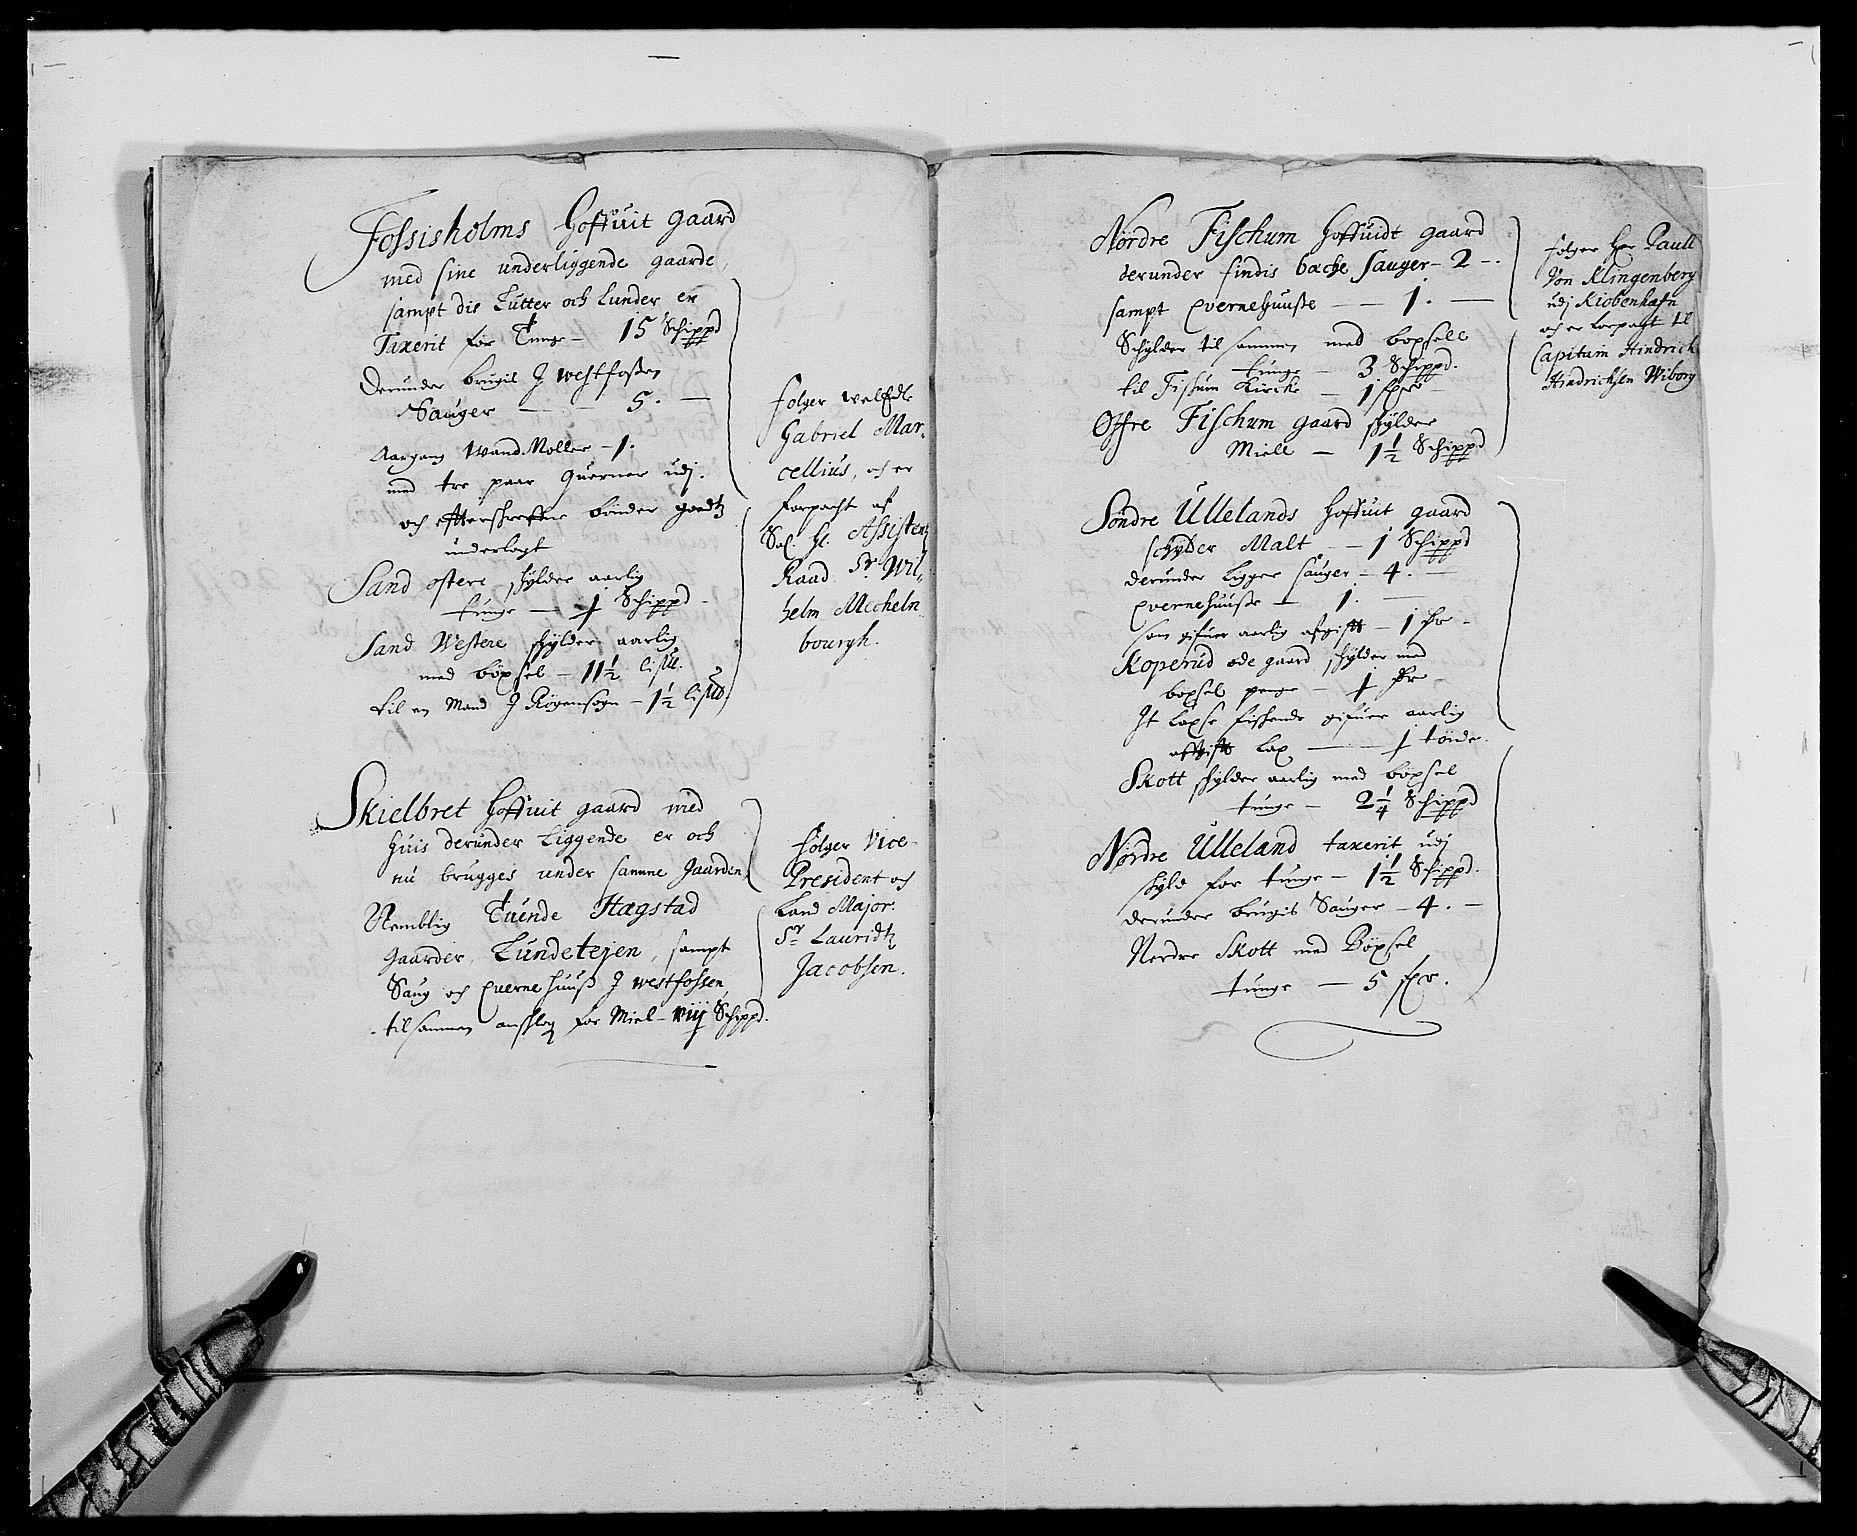 Fossisholms Hoffuit gaard
med sine underliggende gaarde,
sampt die Lutter och Lunder er
Taxerit for Tunge - 15 Schippd
Derunder brugis J westfossen
Sauger - 5. -
Aargang WandMøller - 1.
med tre paar Querner udj.
och efterschreffne bønder goedtz
underlagt
Sand østere schylder aarlig
tunge - 1 Schippd -
Sand Westere schylder aarlig
med böxsel - 11½ lis℔.
til en Mand J Røgensogn - 1½ lis℔.
følger welEdle
Gabriel Mar-
cellius, och er
forpacht af
Sal. Hl. Assistentz
Raad Sr. Wil-
helm Mecheln-
bourgh.
Skielbret Hoffuit gaard med
huis derunder Liggende er och
nu brugges under samme Gaarden,
Nemblig Tuende Hagstad
gaarder, Lundetejen, sampt
Saug och Quernehuuß J westfossen,
tilsammen anschlog for Miel - viij Schippd.
følger Vice-
President och
Land Major.
Sr Lauridtz
Jacobsen.
Nordre Fischum Hoffuidt gaard
derunder findis bache Sauger - 2 -
sampt Qvernehuuße - 1. -
Schylder til sammen med boxsell
tunge - 3 Schippd.
til Fischum Kirche - 1 schr
Øffre Fischum gaard schylder
Miell - 1½ Schippd
følger Her Paull
Von Klingenberg
udj Kiøbenhafn
och er forpagt til
Capitain Hindrich
Hindrichsen Wiborg
Søndre Ullelands Hoffuit gaard
schylder Malt - 1 Schippd
derunder Ligger Sauger - 4. -
Qvernehuuße - 1. -
som gifuer aarlig afgift - 1 fr -
Koperud øde gaard schylder med
boxsel penge - 1 fr -
It Laxse fischende gifuer aarlig
affgift Lax - 1 tønde.
Skott schylder aarlig med böxsel
tunge - 2¼ Schippd
Nordre Ulleland taxerit udj
schyld for tunge - 1½ Schippd.
derunder brugis Sauger - 4. -
Nerdre Skott med Böxsel
tunge - 5 schr.